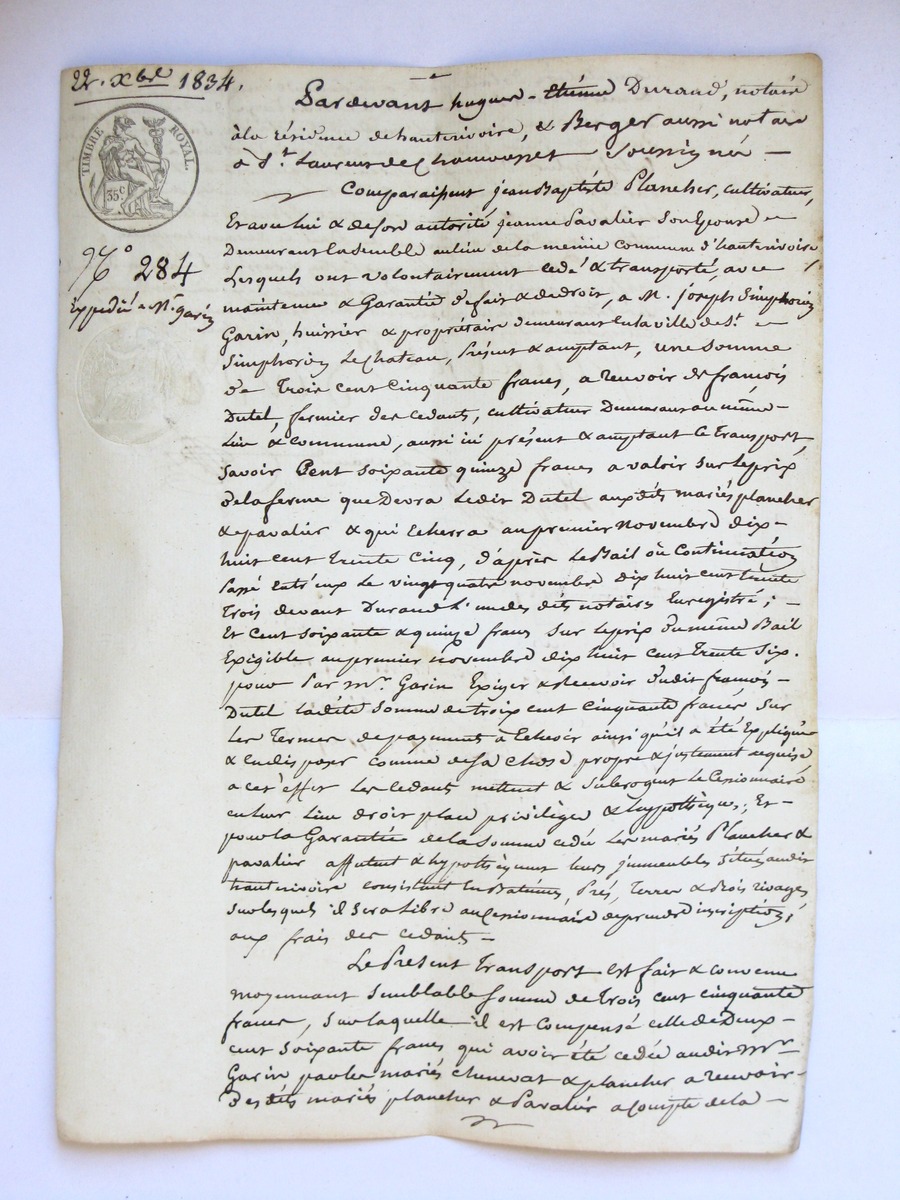 22. Xbre 1834.
TIMBRE ROYAL
35 C.
N° 284
Expédié a Mr garin
Pardevant hugues-Etienne Durand, notaire
à la résidence de hauterivoire, & Berger aussi notaire
à St. Laurent de Chamousset Soussignés —
Comparaissent jean Baptiste Plancher, cultivateur,
Et avec lui & de son autorité jeanne Pavalier Son Epouse
Demeurant Ensemble au lieu de la même commune d'hauterivoire
Lesquels ont volontairement cédé & transporté, avec
maintenue & Garantie de fait & de droit, a M. joseph Simphorien
Garin, huissier & propriétaire demeurant en la ville de St.
Simphorien Le Chateau, Présent & acceptant, une Somme
De Trois cent Cinquante francs, a recevoir de françois
Dutel, fermier des cedants, cultivateur Demeurant au même
Lieu & commune, aussi ici présent & acceptant Ce transport,
Savoir Cent soixante quinze francs a valoir sur le prix
De la ferme que Devra Ledit Dutel aux dits mariés plancher
& pavalier & qui Echerra au premier novembre dix-
huit cent trente cinq, d'après Le Bail où Continuation
Passé Entr'eux Le vingt quatre novembre dix huit cent trente
Trois devant Durand L'un des dits notaires Enregistré; —
Et cent soixante & quinze francs sur le prix du même Bail
Exigible au premier novembre dix huit cent Trente Six.
pour Par Mr. Garin Exiger & recevoir dudit françois
Dutel la dite Somme de troix cent cinquante francs Sur
Les Termes de payement à Echeoir ainsi qu'il a été Expliqué
& en disposer comme de sa chose propre & justement acquise
a cet effet Les Cedants mettent & Subrogent Le Cesionnaire
en leur Lieu droit place privilège & hypothèque; Et —
pour la Garantie de la Somme cédée Les mariés Plancher &
pavalier affectent & hypothèquent leurs jmmeubles Situés audit
hauterivoire consistant En Batiments, Prés, Terres & Bois rivages
Sur lesquels il Sera Libre au Cesionnaire de prendre inscription;
aux frais des cedants —
Le Present Transport est fait & convenu
moyennant Semblable Somme de Trois cent cinquante
francs, Sur laquelle il est Compensé celle de Deux-
cent Soixante francs qui avoit été cédée audit Mr.
Garin par les mariés & plancher a recevoir
Des dits mariés plancher & Pavalier a compte de la —